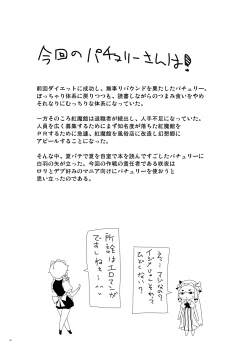 今回のパチュリーさんは!
前回ダイエットに成功し、無事リバウンドを果たしたパチュリー。
ぽっちゃり体系に戻りつつも、読書しながらのつまみ食いをやめ
それなりにむっちりな体系になっていた。
一方そのころ紅魔館は退職者が続出し、人手不足になっていた。
人員を広く募集するためにまず知名度が落ちた紅魔館を
PRするために急遽、紅魔館を風俗店に改造し幻想郷に
アピールすることになった。
そんな中、夏バテで夏を自室で本を読んですごしたパチュリーに
白羽の矢が立った。今回の作戦の責任者である咲夜は
ロリとデブ好みのマニア向けにパチュリーを使おうと
思い立ったのである。
所詮はエロマンガ
ですしねぇ〜
えー、マジなの?